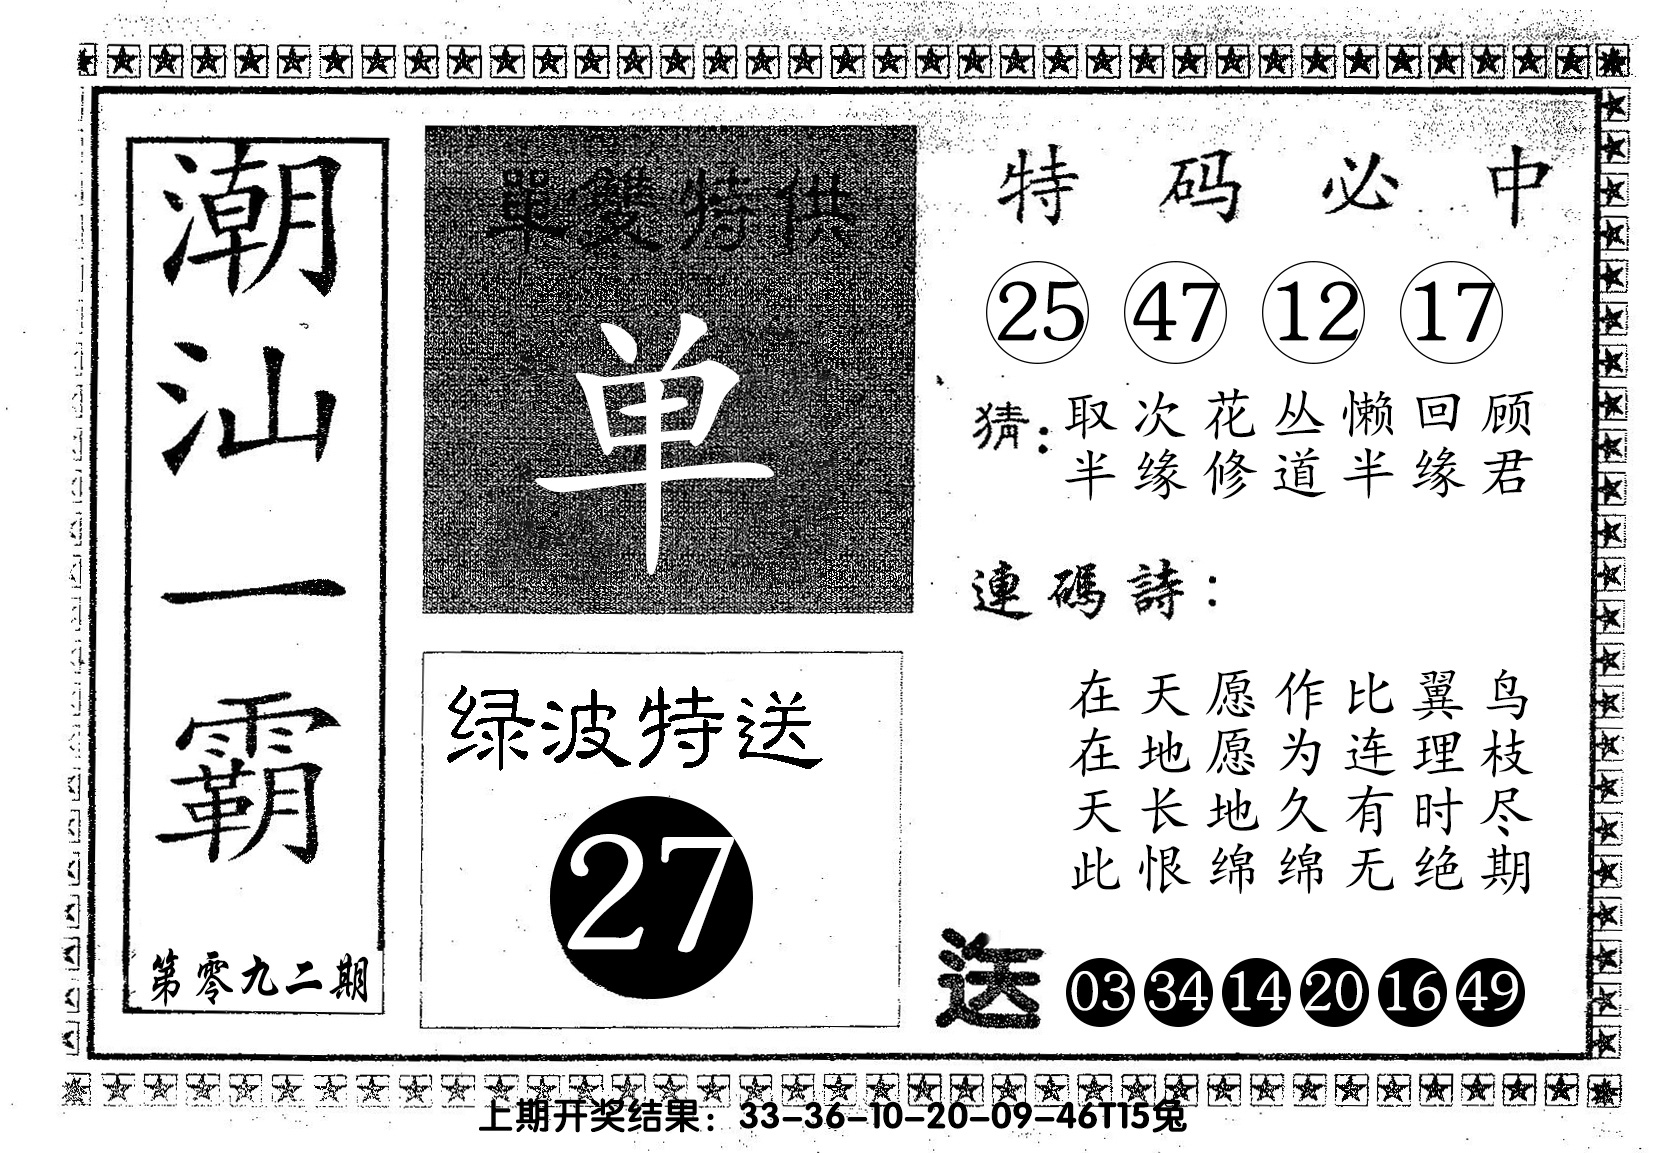 潮汕一霸
第零九二期
單雙特供
单
绿波特送
27
特码必中
25 47 12 17
猜：取次花丛懒回顾
半缘修道半缘君
連碼詩：
在天愿作比翼鸟
在地愿为连理枝
天长地久有时尽
此恨绵绵无绝期
送 03 34 14 20 16 49
上期开奖结果：33-36-10-20-09-46T15兔